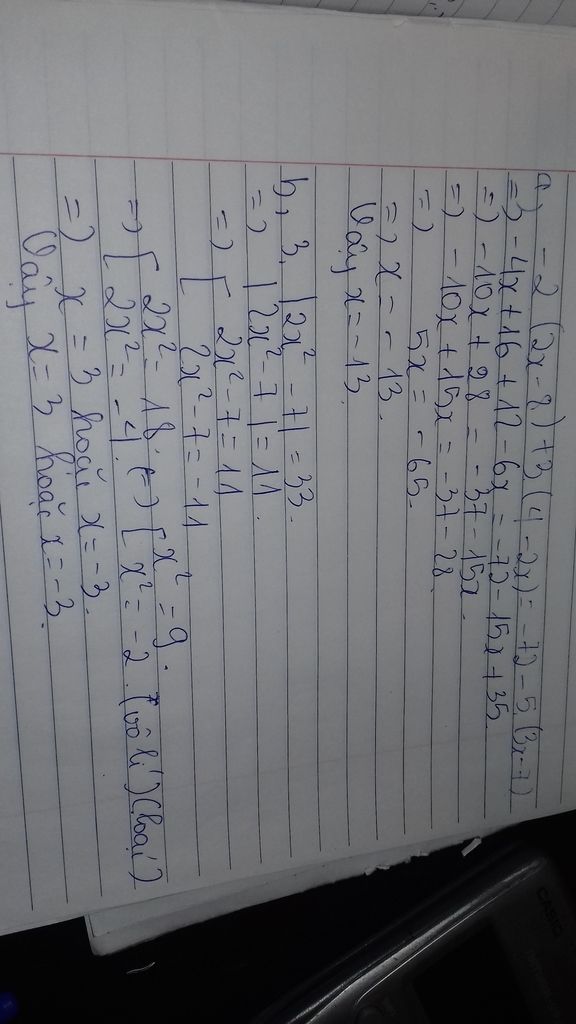 a, -2 (2x-8) +3 (4-2x) = -72-5. (3x-7)
=> -4x+16 + 12-6x = -72-15x+35
=> -10x + 28 = -37-15x.
=> -10x + 15x = -37-28.
=> 5x = -65.
=> x = -13.
Vậy x = -13.
b, 3. |2x² - 7| = 33.
=> |2x²-7| = 11.
=> [ 2x²-7 = 11
2x²-7 = -11
=> [ 2x² = 18. (=) [ x² = 9.
2x² = -4. x² = -2. (vô lí) (loại)
=> x = 3 hoặc x = -3.
Vậy x = 3 hoặc x = -3.
CASIO